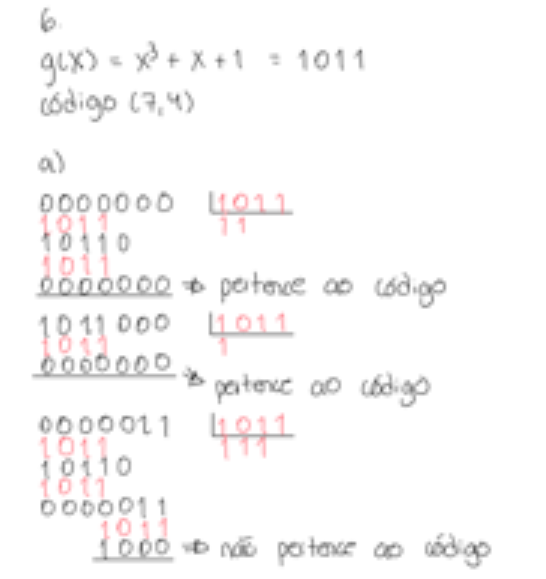 6.
g(x) = x³ + x + 1 = 1011
código (7,4)
a)
0000000 1011
1011 11
10110
1011
0000000 => pertence ao código
1011000 1011
1011 1
0000000 => pertence ao código
0000011 1011
1011 111
10110
1011
0000011
1011
1000 => não pertence ao código